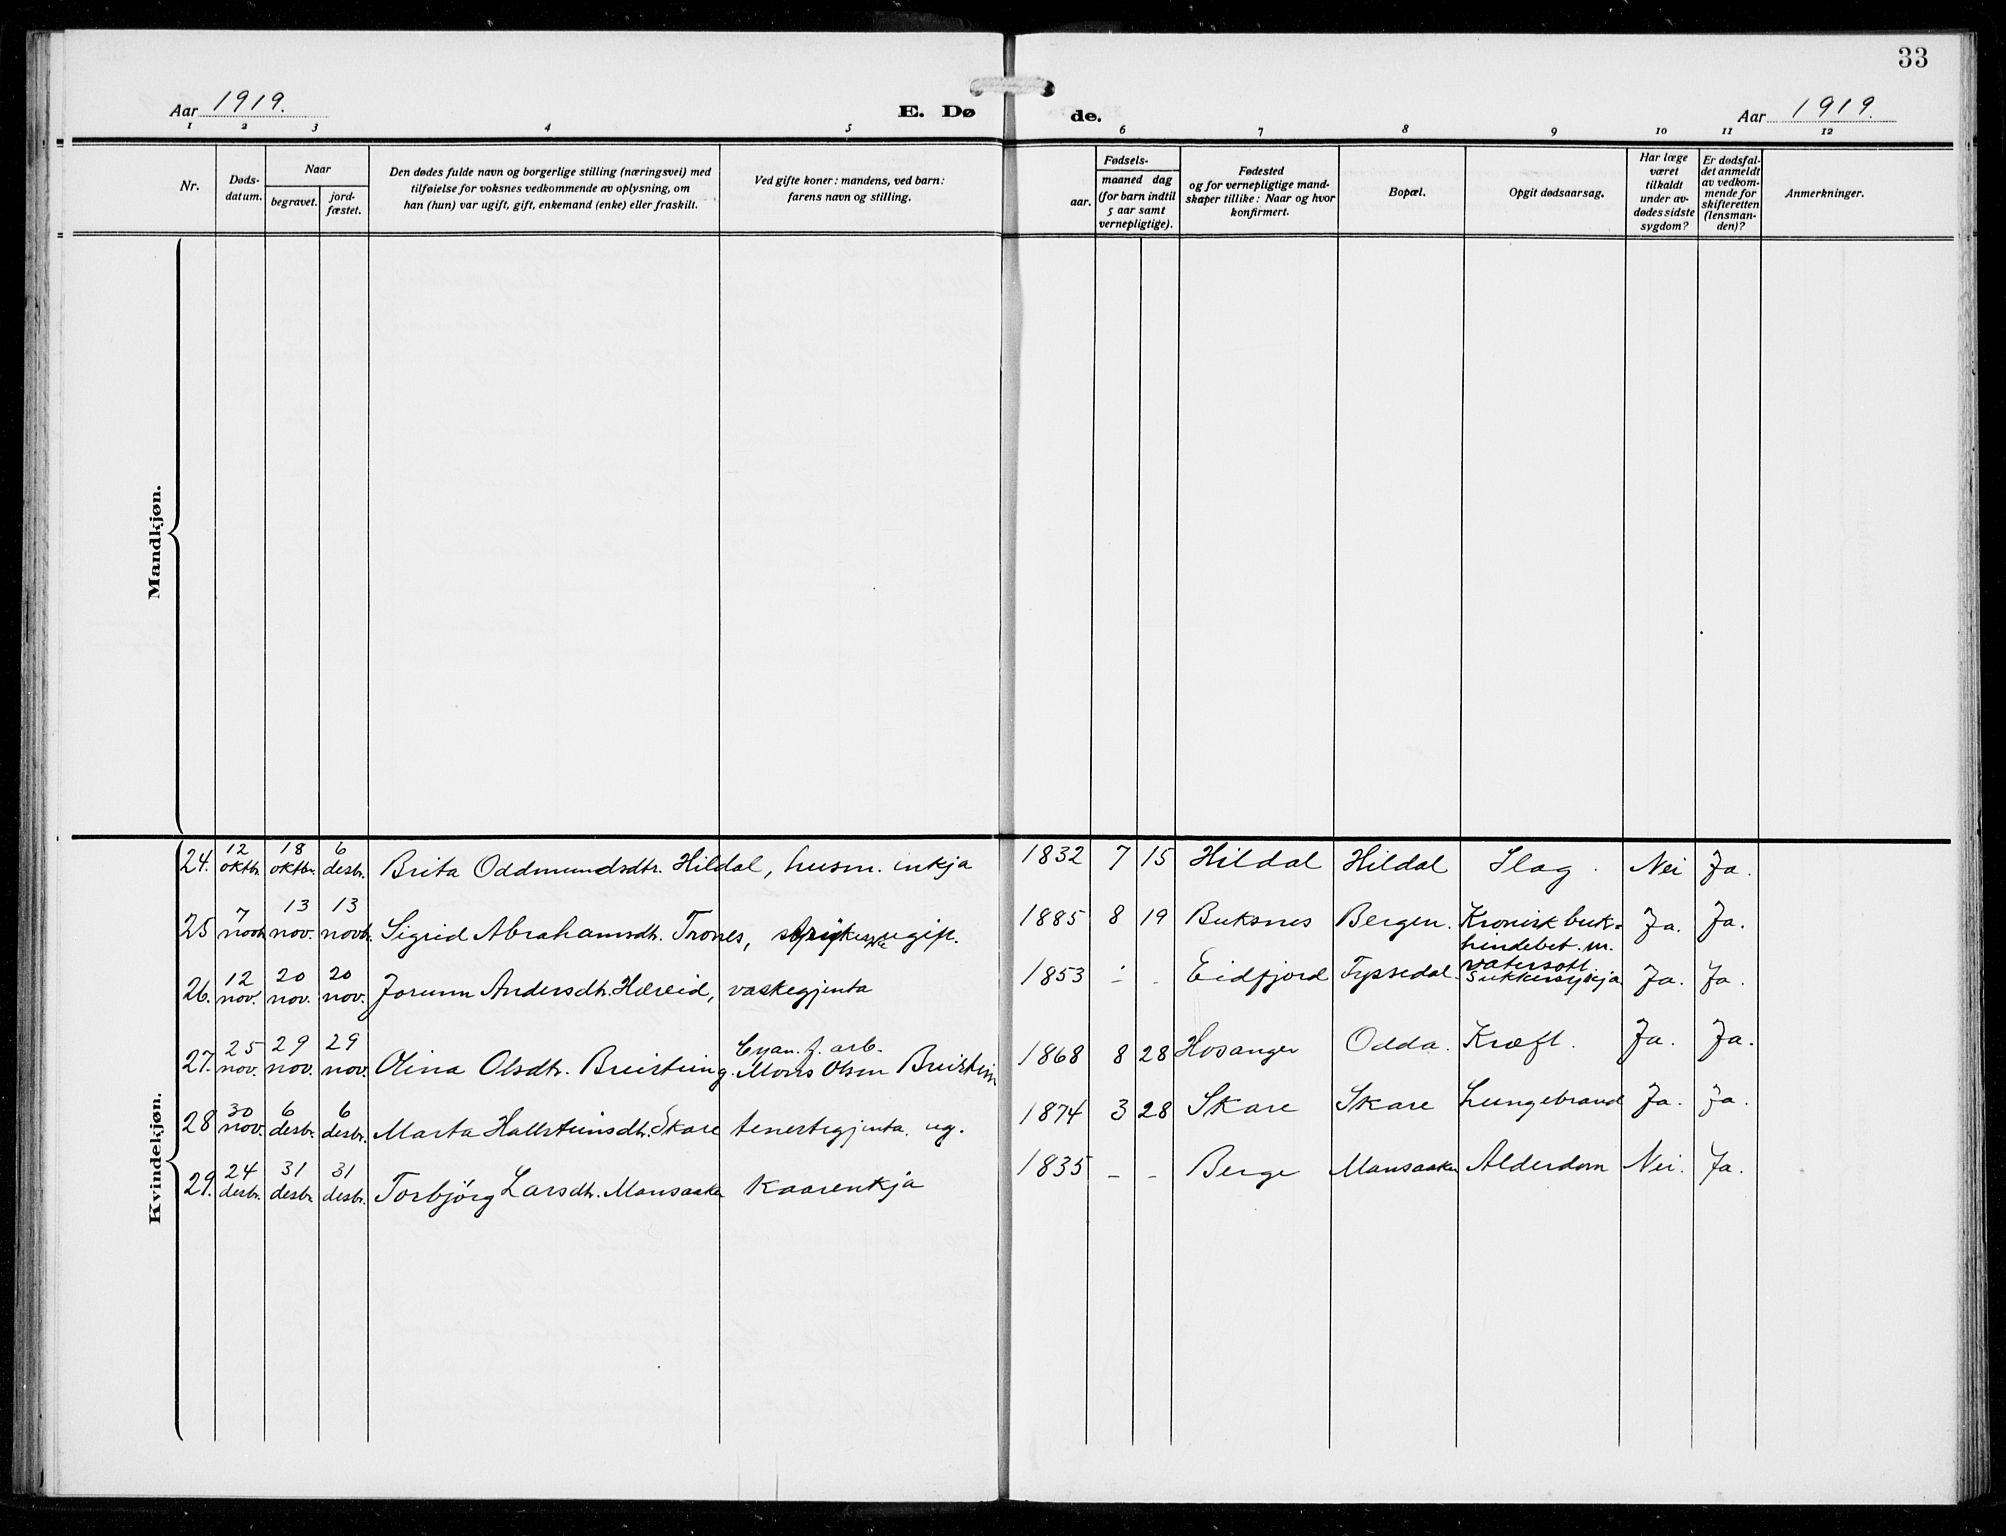 33
Aar 1919.
E. Dø de.
Aar 1919.
1 2 3 4 5 6 7 8 9 10 11 12
Nr.
Døds-
datum.
Naar
begravet.
jord-
fæstet.
Den dødes fulde navn og borgerlige stilling (næringsvei) med
tilføielse for voksnes vedkommende av oplysning, om
han (hun) var ugift, gift, enkemand (enke) eller fraskilt.
Ved gifte koner: mandens, ved barn:
farens navn og stilling.
Fødsels-
aar.
maaned dag
(for barn indtil
5 aar samt
vernepligtige).
Fødested
og for vernepligtige mand-
skaper tillike: Naar og hvor
konfirmert.
Bopæl.
Opgit dødsaarsag.
Har læge
været
tilkaldt
under av-
dødes sidste
sygdom?
Er dødsfal-
det anmeldt
av vedkom-
mende for
skifteretten
(lensman-
den)?
Anmerkninger.
Mandkjøn.
Kvindekjøn.
24. 12 oktbr. 18 oktbr. 6 desbr. Brita Oddmundsdtr. Hildal, husm. inkja 1832 7 15 Hildal Hildal Slag. Nei Ja.
25 7 novbr. 13 nov. 13 novbr. Sigrid Abrahamsdtr. Trones, ugift. 1885 8 19 Buksnes Bergen. Kronisk buk-
hindebet. m.
vatersott Ja. Ja.
26. 12 nov. 20 nov. 20 nov. Jorunn Andersdtr. Hæreid, vaskegjenta 1853 - - Eidfjord Tyssedal. Sukkersykja Ja. Ja.
27. 25 nov. 29 nov. 29 nov. Olina Olsdtr. Bruistung. Cyan. f. arb.
Mons Olsen 1868 8 28 Hosanger Odda. Kræft. Ja. Ja.
28 30 nov. 6 desbr. 6 desbr. Marta Hallsteinsdtr. Skare tenestegjenta. ug. 1874 3 28 Skare Skare Lungebrand Ja. Ja.
29. 24 desbr. 31 desbr. 31 desbr. Torbjørg Larsdtr. Mansaaker kaarenkja 1835 - - Berge Mansaaker Alderdom Nei. Ja.